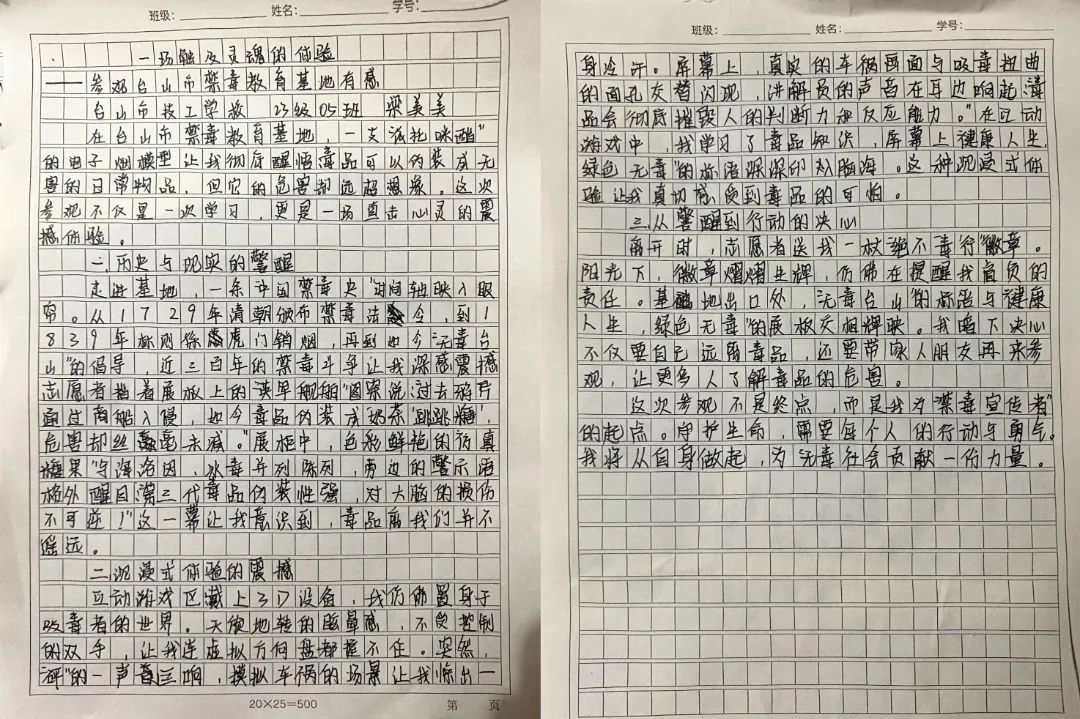 班级： 姓名： 学号：
一场触及灵魂的体验
——参观台山市禁毒教育基地有感
台山市技工学校 23级05班 梁美美
在台山市禁毒教育基地，一支"依托咪酯"
的电子烟模型让我彻底醒悟毒品可以伪装成无
害的日常物品，但它的危害却远超想象。这次
参观不仅是一次学习，更是一场直击心灵的震
撼体验。
一.历史与现实的警醒
走进基地，一条"中国禁毒史"时间轴映入眼
帘。从1729年清朝颁布禁毒法令，到1
839年林则徐虎门销烟，再到如今"无毒台
山"的倡导，近三百年的禁毒斗争让我深感震撼
志愿者指着展板上的"谈早舰船"图案说:过去鸦片
通过商船入侵，如今毒品伪装成奶茶"跳跳糖"，
危害却丝毫未减。"展柜中，色彩鲜艳的"仿真
糖果"与海洛因，冰毒并列陈列，旁边的警示语
格外醒目"第三代毒品伪装性强，对大脑的损伤
不可逆！"这一幕让我意识到，毒品离我们并不
遥远。
二.沉浸式体验的震撼
互动游戏区戴上3D设备，我仿佛置身于
吸毒者的世界。天旋地转的眩晕感，不受控制
的双手，让我连虚拟方向盘都握不住。突然，
"砰"的一声巨响，模拟车祸的场景让我惊出一
20×25=500 第 页
班级： 姓名： 学号：
身冷汗。屏幕上，真实的车祸画面与吸毒扭曲
的面孔交替闪现，讲解员的声音在耳边响起:"毒
品会彻底摧毁人的判断力和反应能力。"在互动
游戏中，我学习了毒品知识，屏幕上"健康人生，
绿色无毒"的标语深深印入脑海。这种沉浸式体
验让我真切感受到毒品的可怕。
三.从警醒到行动的决心
离开时，志愿者送我一枚"绝不毒行"徽章。
阳光下，徽章熠熠生辉，仿佛在提醒我肩负的
责任。基地出口处，"无毒台山"的标语与"健康
人生，绿色无毒"的展板交相辉映。我暗下决心
不仅要自己远离毒品，还要带家人朋友再来参
观，让更多人了解毒品的危害。
这次参观不是终点，而是我为"禁毒宣传者"
的起点。守护生命，需要每个人的行动与勇气。
我将从自身做起，为无毒社会贡献一份力量。